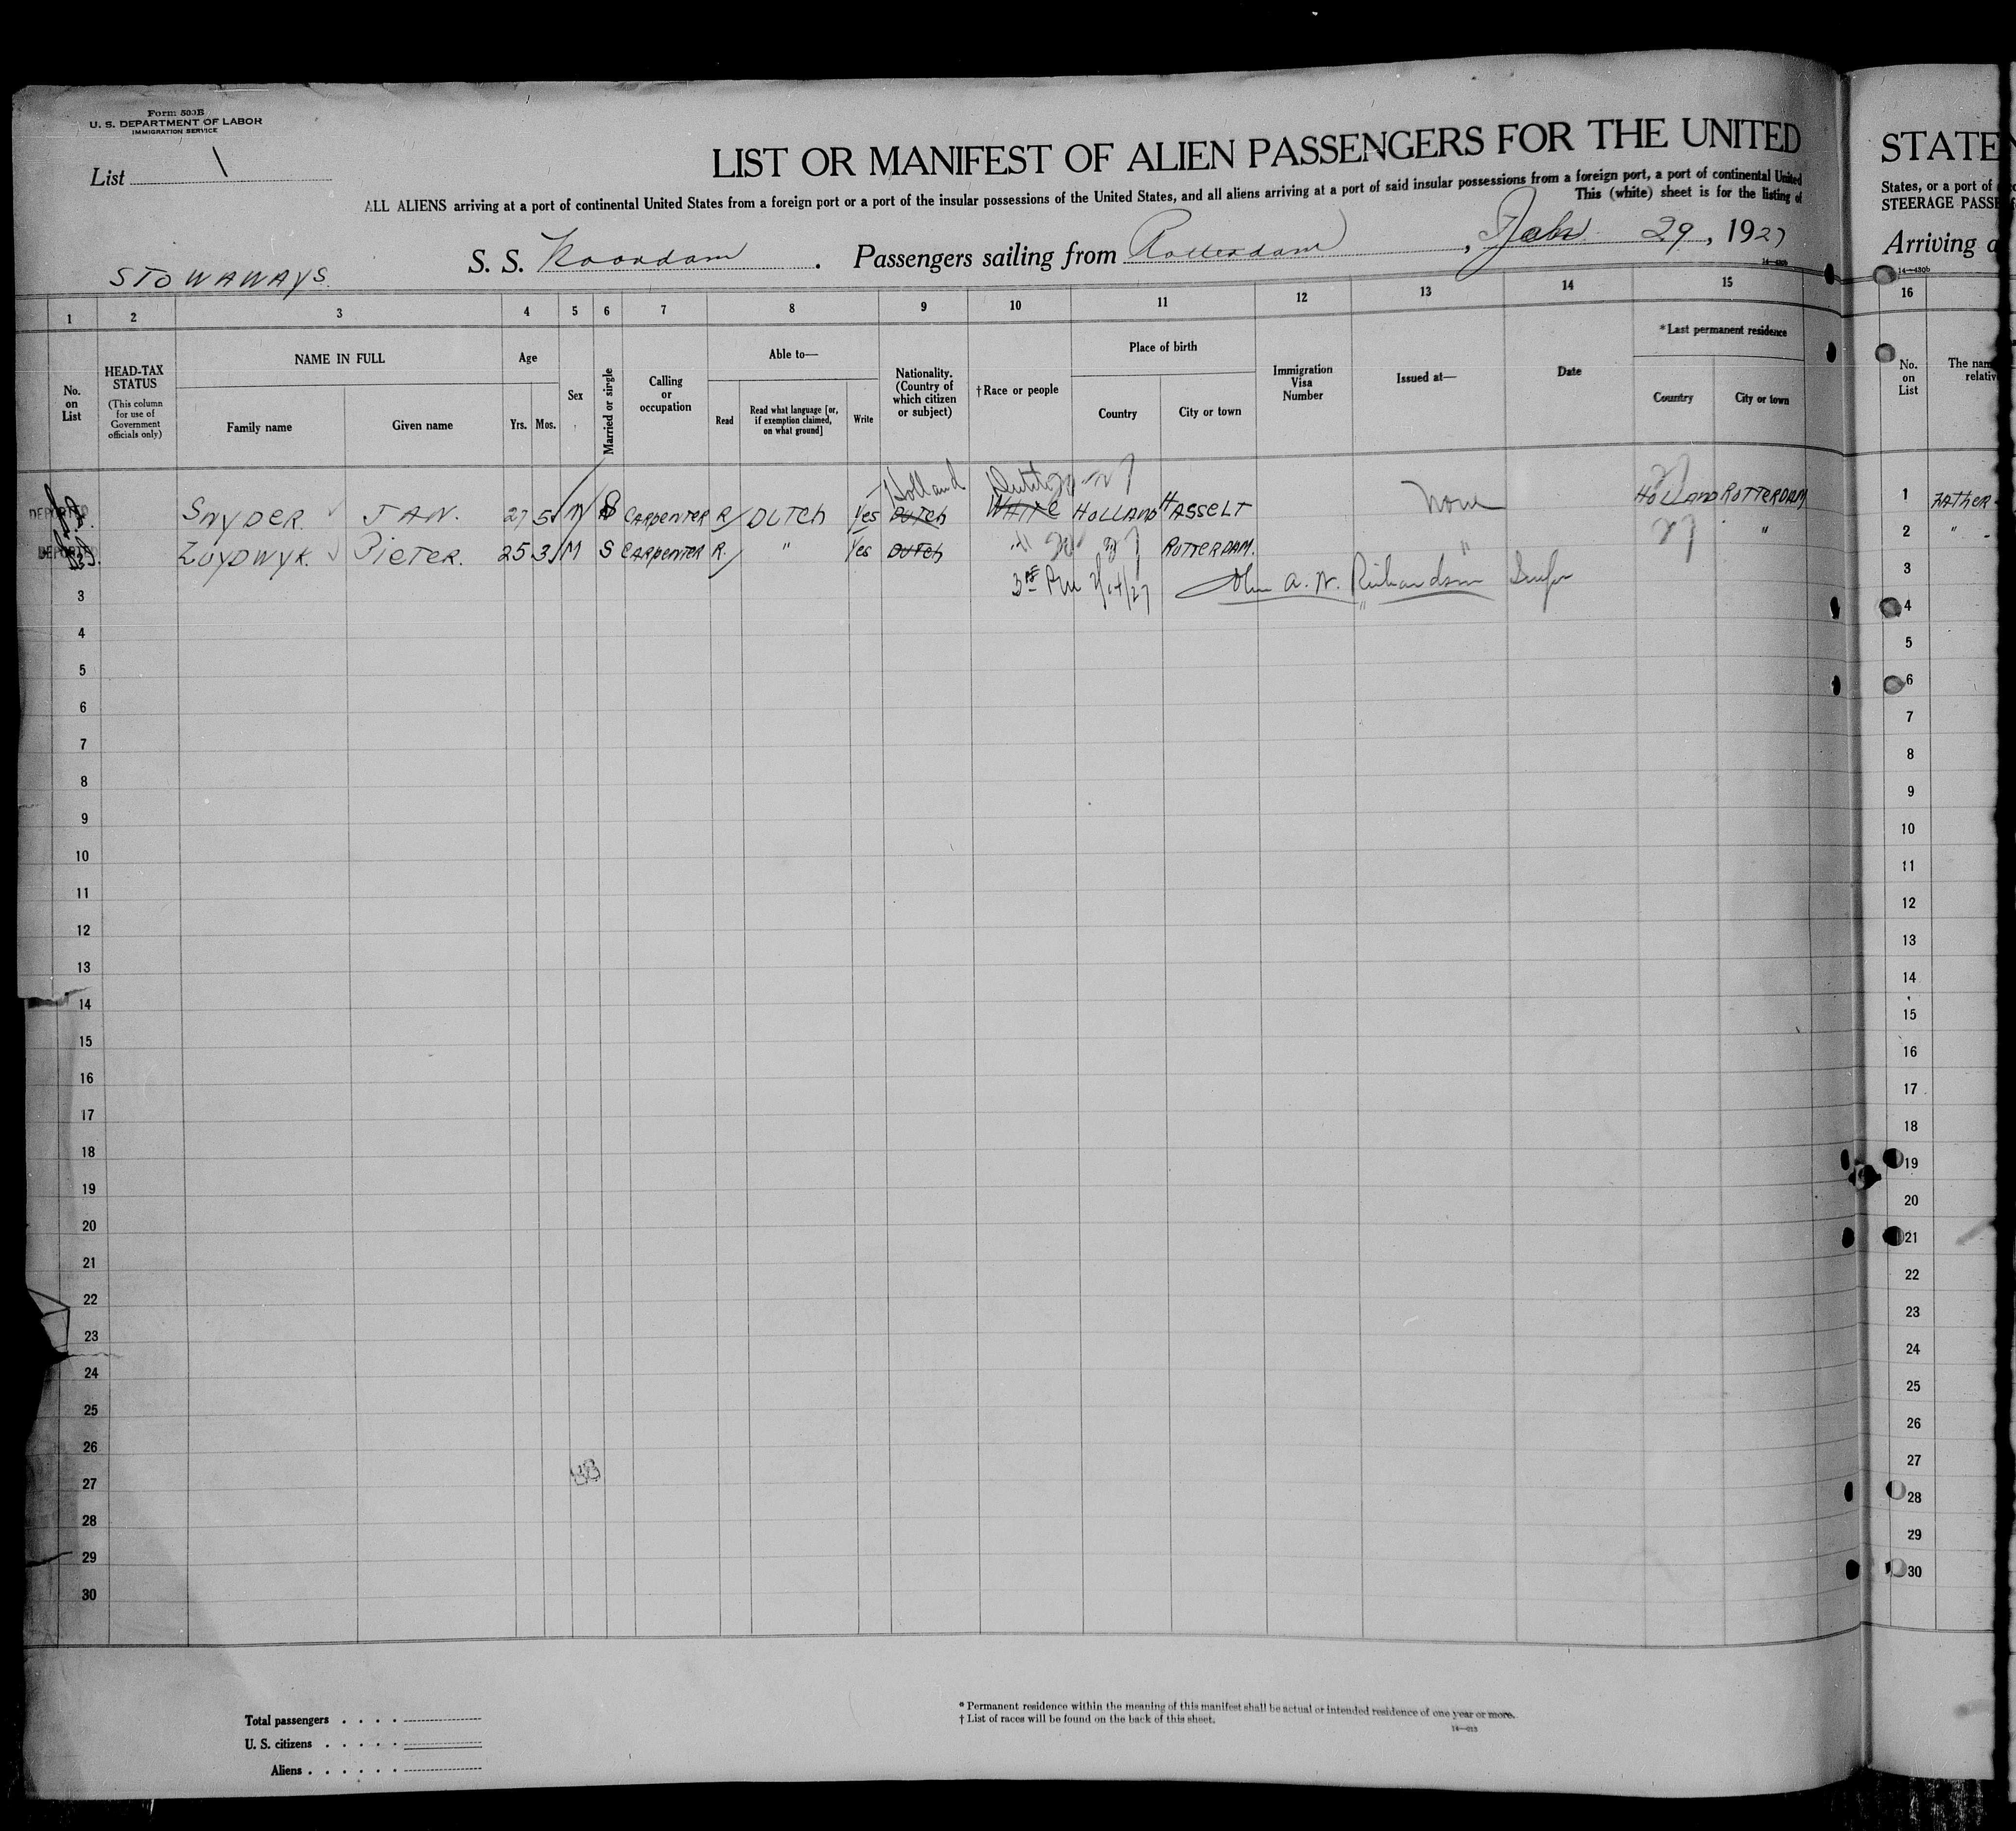 Form 500B
U. S. DEPARTMENT OF LABOR
IMMIGRATION SERVICE
List 1
LIST OR MANIFEST OF ALIEN PASSENGERS FOR THE UNITED
ALL ALIENS arriving at a port of continental United States from a foreign port or a port of the insular possessions of the United States, and all aliens arriving at a port of said insular possessions from a foreign port, a port of continental United
This (white) sheet is for the listing of
STOWAWAYS.
S. S. Noordam . Passengers sailing from Rotterdam , 29, 1927
14—430b
1 2 3 4 5 6 7 8 9 10 11 12 13 14 15
No. on List
HEAD-TAX STATUS
(This column for use of Government officials only)
NAME IN FULL
Family name
Given name
Age
Yrs.
Mos.
Sex
Married or single
Calling or occupation
Able to—
Read
Read what language [or, if exemption claimed, on what ground]
Write
Nationality. (Country of which citizen or subject)
†Race or people
Place of birth
Country
City or town
Immigration Visa Number
Issued at—
Date
*Last permanent residence
Country
City or town
Holland Dutch
DEPORTED SNYDER. JAN. 27 5 M S CARPENTER R DUTCH Yes DUTCH WHITE HOLLAND HASSELT None HOLLAND ROTTERDAM
DEPORTED ZUYDWYK. PIETER. 25 3 M S CARPENTER R. " Yes DUTCH " ROTTERDAM. " "
3 PM 2/14/27 John A. W. Richardson
3
4
5
6
7
8
9
10
11
12
13
14
15
16
17
18
19
20
21
22
23
24
25
26
27
28
29
30
Total passengers
U. S. citizens
Aliens
* Permanent residence within the meaning of this manifest shall be actual or intended residence of one year or more.
† List of races will be found on the back of this sheet.
STATE
States, or a port of
STEERAGE PASSE
Arriving a
14—430b
16
No. on List
The nam
relativ
1 FATHER
2 "
3
4
5
6
7
8
9
10
11
12
13
14
15
16
17
18
19
20
21
22
23
24
25
26
27
28
29
30